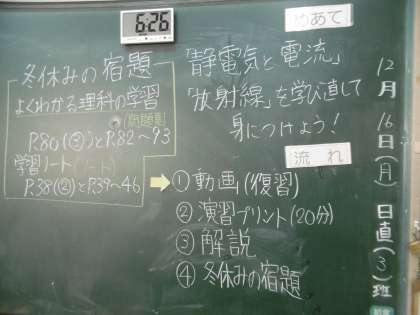 6:26
めあて
「静電気と電流」
「放射線」を学び直して
身につけよう！
流れ
①動画(復習)
②演習プリント(20分)
③解説
④冬休みの宿題
冬休みの宿題
よくわかる理科の学習
P.80(③)とP.82～93
学習ノート
P.38(②)とP.39～46
12月16日(月)日直(3)班